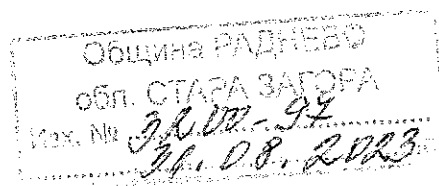 Община РАДНЕВО
обл. СТАРА ЗАГОРА
Изх. № 3200-97
31.08.2023